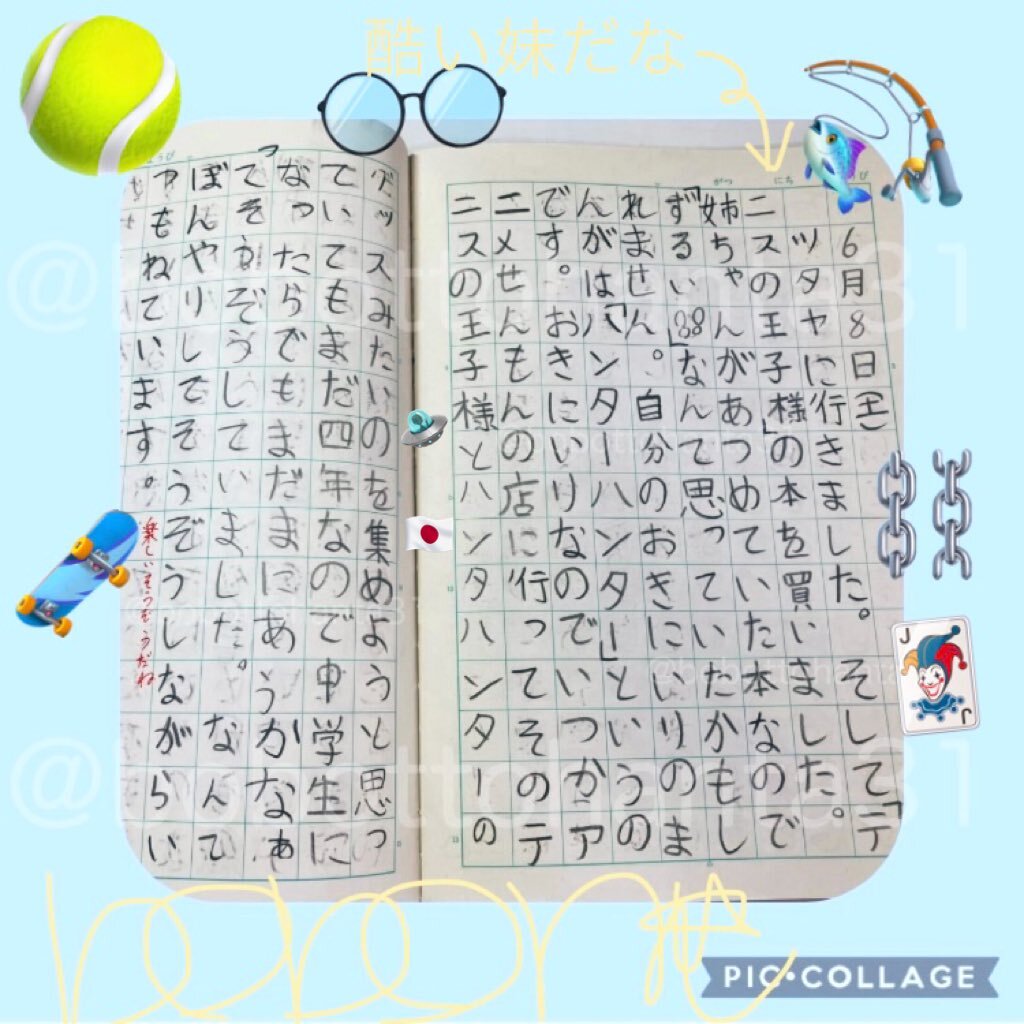 酷い妹だな
6月8日(土)
ツタヤに行きました。そして「テ
ニスの王子様」の本を買いました。
姉ちゃんがあつめていた本なので
「ずるい」なんて思っていたかもし
れません。自分のおきにいりのま
んがは「ハンターハンタ」というの
です。おきにいりなのでいつかア
ニメせんもんの店に行ってそのテ
ニスの王子様とハンタハンターの
グッスみたいのを集めようと思っ
ていてもまだ四年なので中学生に
なったらでもまだまにあうかなぁ
ってそうぞうしていました。なんて
ぼんやりしでそうぞうしながらい
つもねています。
楽しいそうぞうだね
PIC•COLLAGE